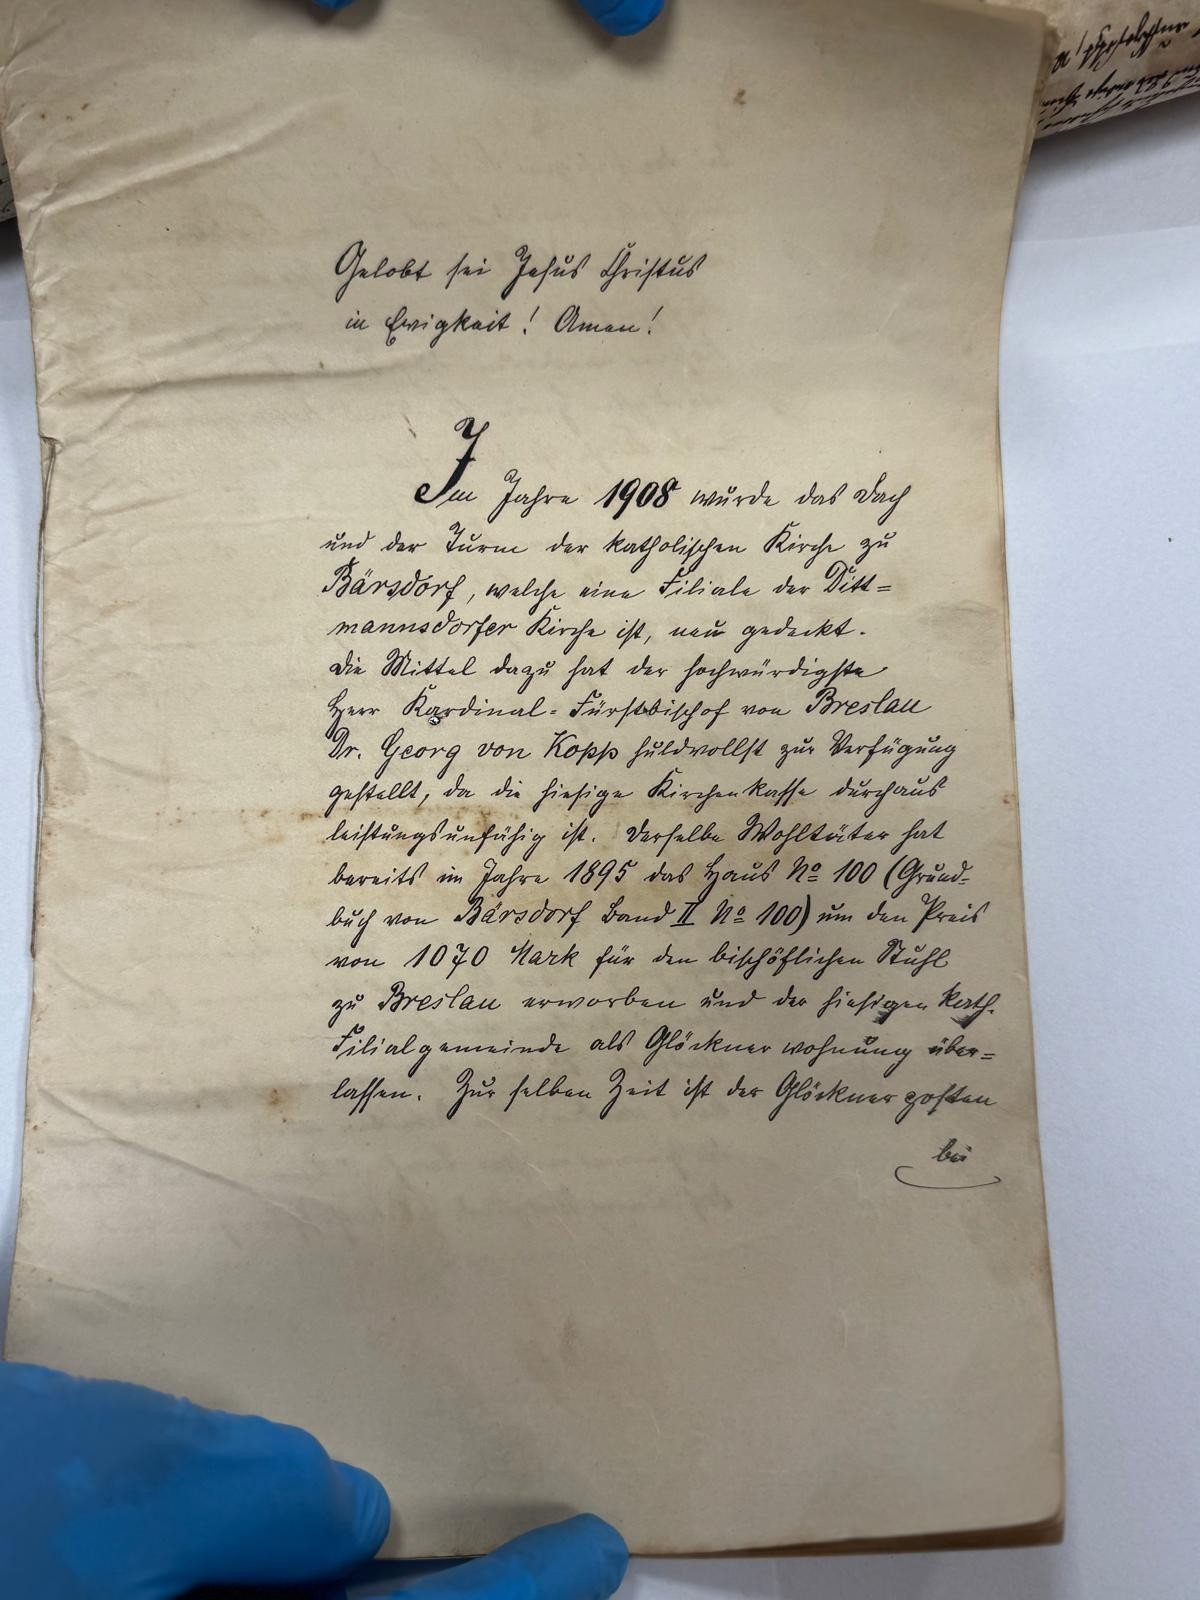 Gelobt sei Jesus Christus
in Ewigkeit! Amen!
Im Jahre 1908 wurde das Dach
und der Turm der katholischen Kirche zu
Bärsdorf, welche eine Filiale der Ditt=
mannsdorfer Kirche ist, neu gedeckt.
Die Mittel dazu hat der hochwürdigste
Herr Kardinal=Fürstbischof von Breslau
Dr. Georg von Kopp huldvollst zur Verfügung
gestellt, da die hiesige Kirchenkasse durchaus
leistungsunfähig ist. Derselbe Wohltäter hat
bereits im Jahre 1895 das Haus No 100 (Grund=
buch von Bärsdorf Band II No 100) um den Preis
von 1070 Mark für den bischöflichen Stuhl
zu Breslau erworben und der hiesigen kath.
Filialgemeinde als Glöcknerwohnung über=
lassen. Zur selben Zeit ist der Glöcknerposten
bei